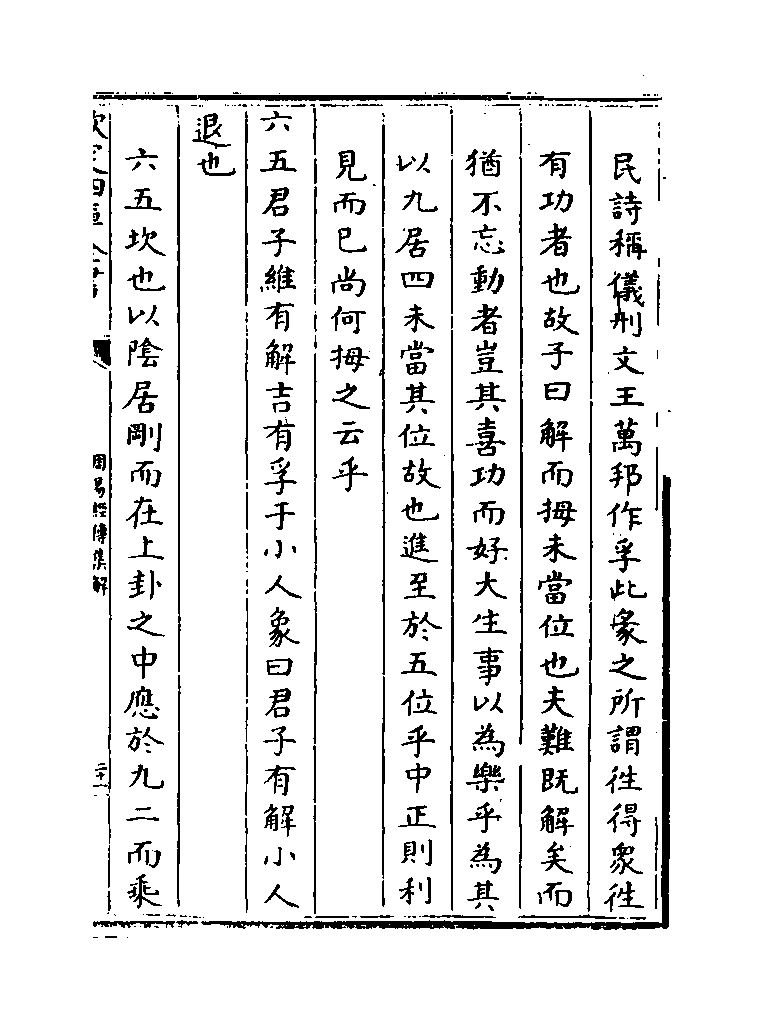 民詩稱儀刑文王萬邦作孚此彖之所謂往得衆往
有功者也故子曰解而拇未當位也夫難既解矣而
猶不忘動者豈其喜功而好大生事以為樂乎為其
以九居四未當其位故也進至於五位乎中正則利
見而已尚何拇之云乎
六五君子維有解吉有孚于小人象曰君子有解小人
退也
六五坎也以陰居剛而在上卦之中應於九二而乘
欽定四庫全書
周易經傳集解